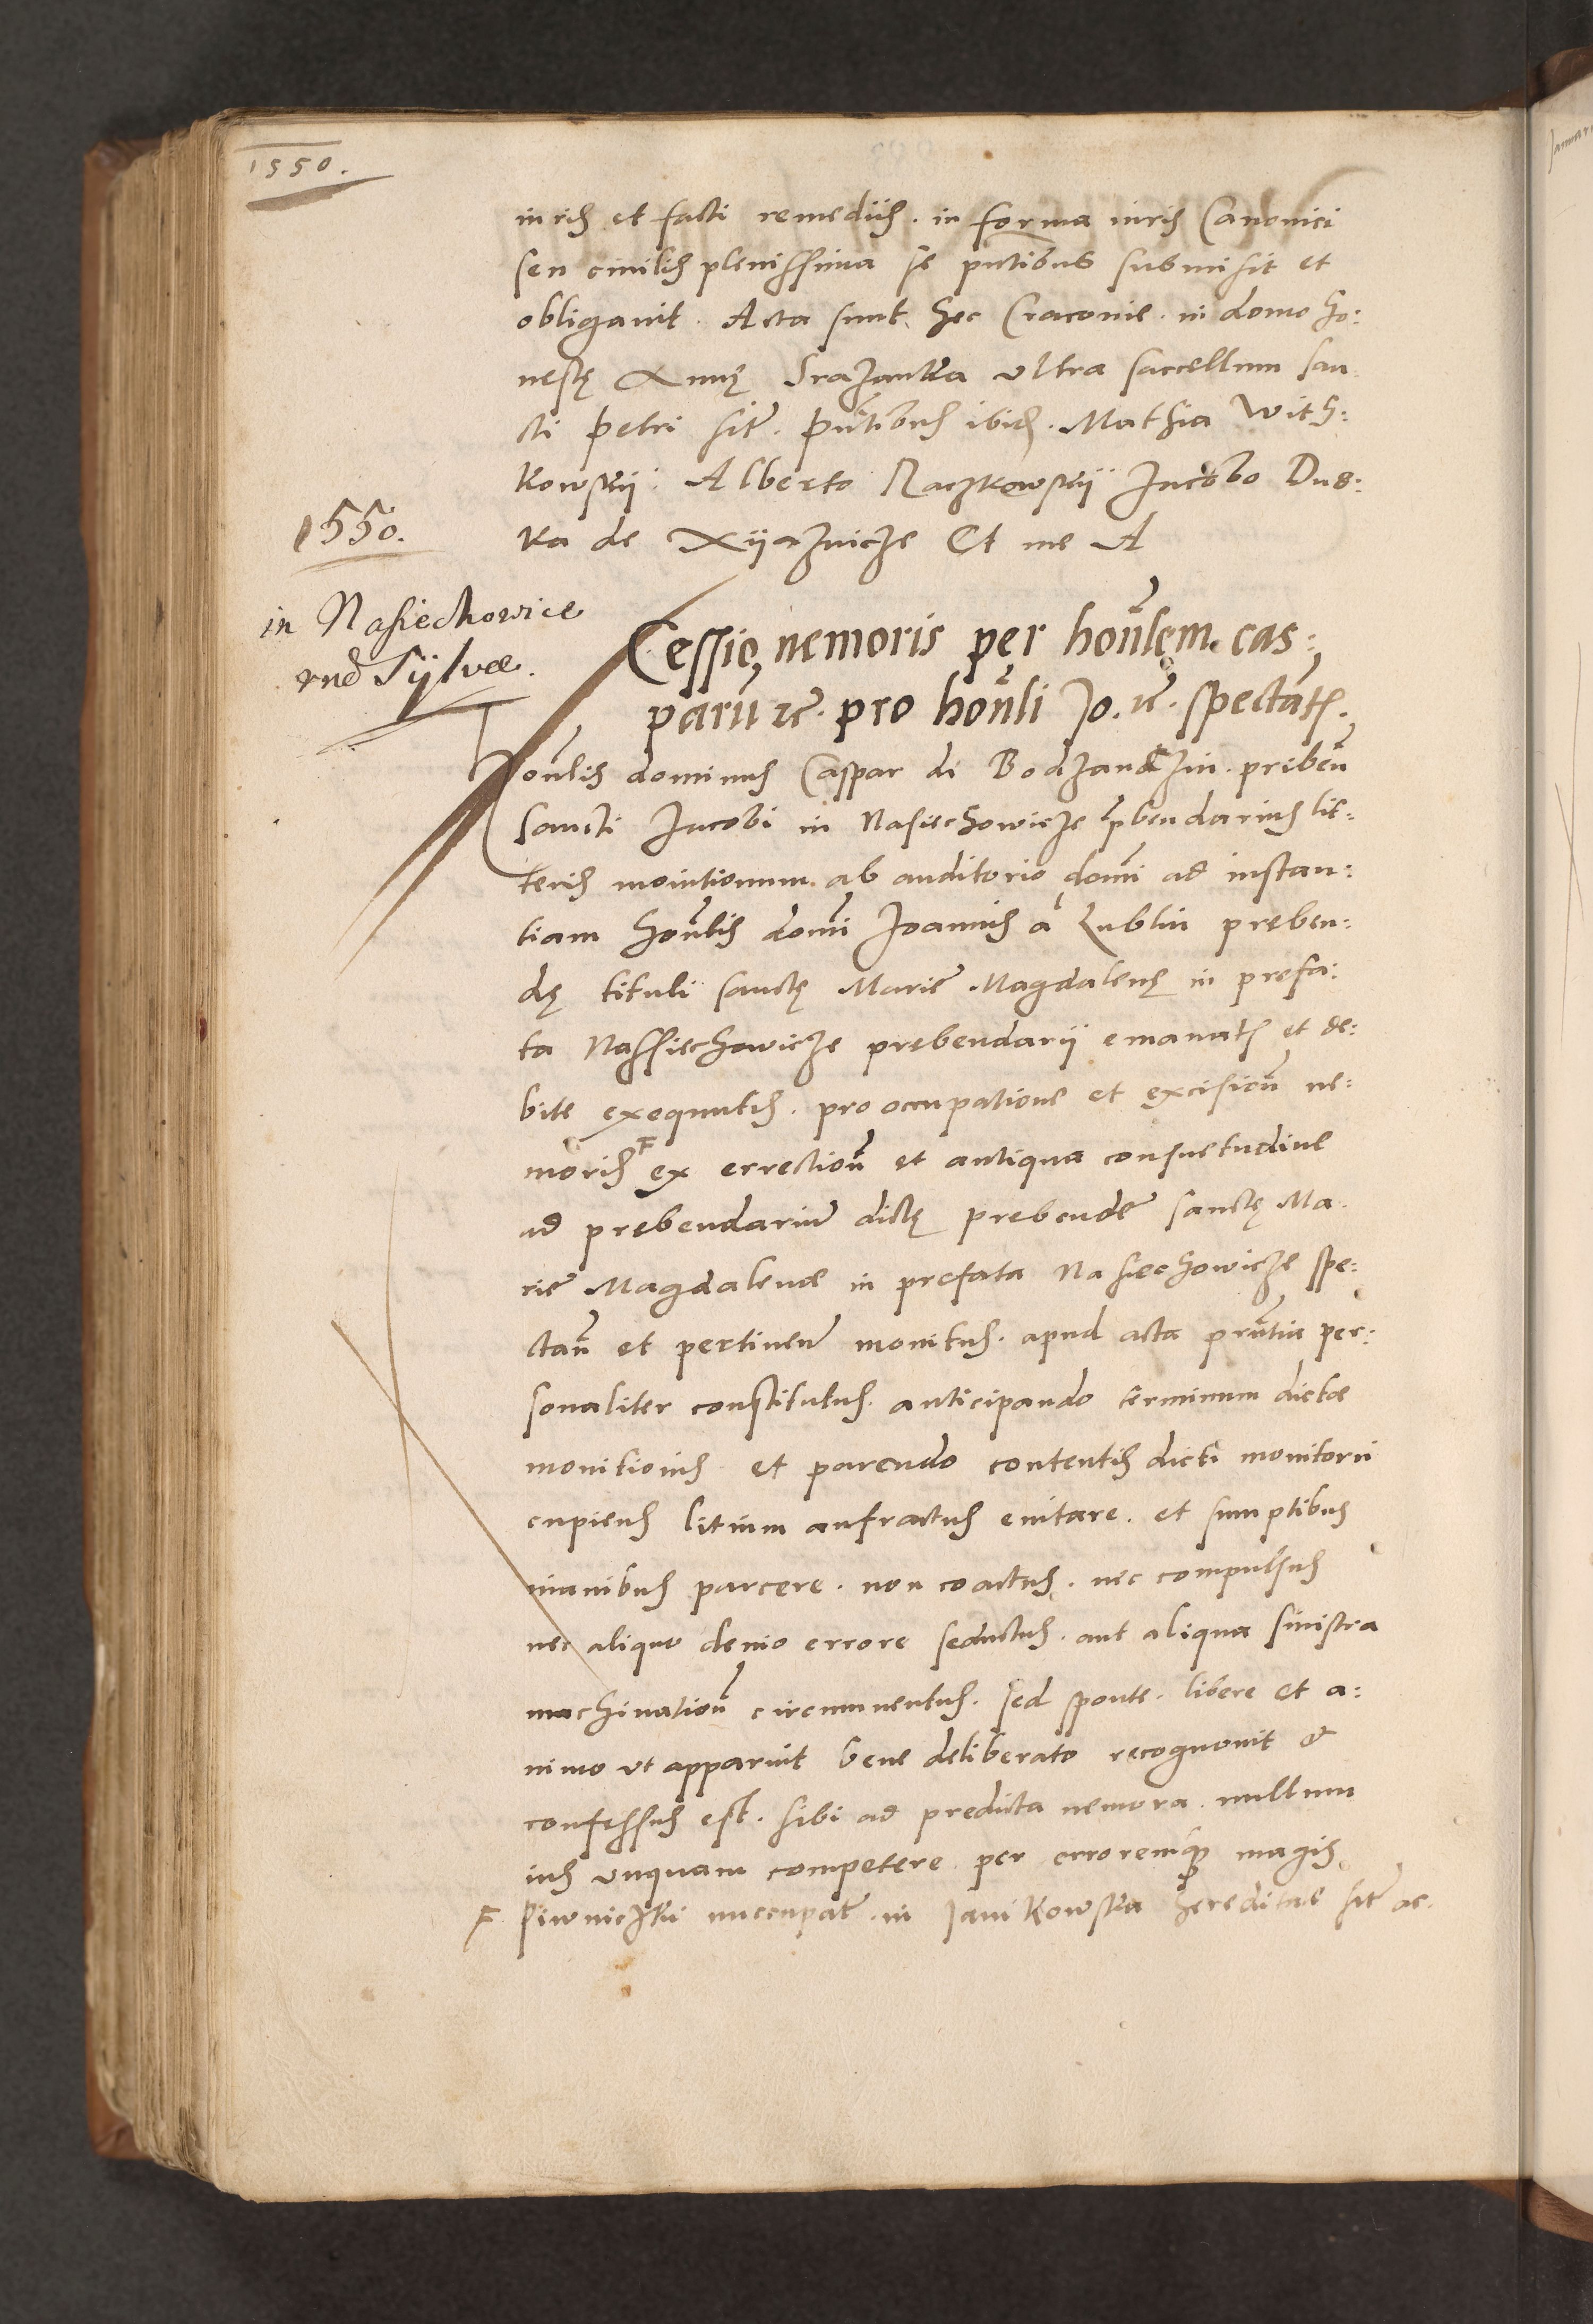 1550.
iuris et facti remediis. in forma iuris Canonici
seu ciuilis plenissima se pñtibus submisit et
obligauit. Acta sunt hec Cracouie. in domo ho:
nestę Annę vltra sacellum san
cti Petri sit̃. pñtibus ibid. Mathia With:
kowskij. Alberto Raczkowskij Jacobo Dus:
ka de Xyaznicze Et me A
1550.
in Nasiechowice
Sylvæ.
Cessio nemoris per honñlem. cas:
parũ ꝛc̃. pro honñli Jo. ꝛc̃. spectatꝭ.
Honñlis dominus Caspar de Bodzanczin. prebeñ
sancti Jacobi in Nasiechowicze p̃bendarius lit:
teris monitionum. ab auditorio domĩ ad instan:
tiam honñlis domĩ Joannis a Lublin pręben:
dę tituli sanctę Marię Magdalenę in prefa:
ta Nassiechowicze prebendarij emanatꝭ et de:
bite exequutis. pro occupatione et excisioñ ne:
moris F ex erectioñ et antiqua consuetudine
ad prębendariũ dictę prebendę sanctę Ma
rię Magdalenæ in prefata Nasiechowicze spe:
ctañ et pertineñ monitus. apud acta pñtia per:
sonaliter constitutus. anticipando terminum dictæ
monitionis et parendo contentis dicti monitorii
cupiens litium anfractus euitare. et sumptibus
inanibus parcere. non coactus. nec compulsus
nec aliquo deuio errore seductus. aut aliqua sinistra
machinatioñ circumuentus. sed sponte. libere et a:
nimo vt apparuit bene deliberato recognouit &
confessus est. sibi ad predicta nemora. nullum
ius vnquam competere. per erroremqꝫ magis
F Piwniczki nuccupat̃. in Janikowska hereditate sit̃ ac.